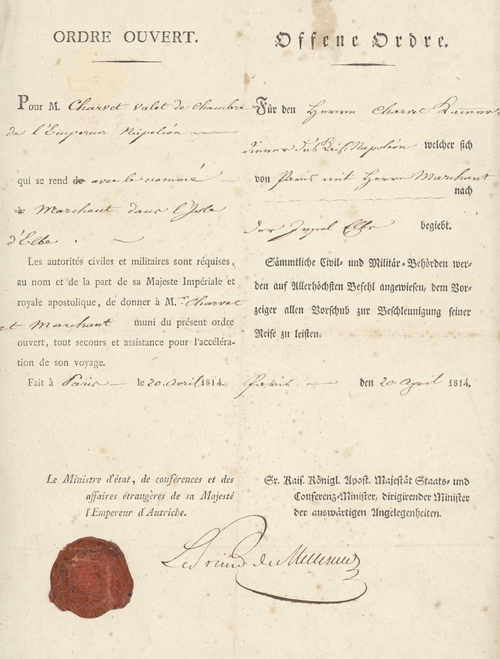 ORDRE OUVERT.
Pour M. Charvet valet de chambre
de l'Empereur Napoléon
qui se rend de avec le nommé
à Marchant dans l'Isle
d'Elbe.
Les autorités civiles et militaires sont réquises,
au nom et de la part de sa Majeste Impériale et
royale apostolique, de donner à M.r Charvet
et Marchant muni du présent ordre
ouvert, tout secours et assistance pour l'accéléra-
tion de son voyage.
Fait à Paris le 20. avril 1814.
Le Ministre d'état, de conférences et des
affaires étrangères de sa Majesté
l'Empereur d'Autriche.
Offene Ordre.
Für den Herrn Charvet Kammer-
diener des Kais. Napoléon welcher sich
von Paris mit Herrn Marchant
nach
der Insel Elbe begiebt.
Sämmtliche Civil- und Militär-Behörden wer-
den auf Allerhöchsten Befehl angewiesen, dem Vor-
zeiger allen Vorschub zur Beschleunigung seiner
Reise zu leisten.
Paris den 20. April 1814.
Sr. Kais. Königl. Apost. Majestät Staats- und
Conferenz-Minister, dirigirender Minister
der auswärtigen Angelegenheiten.
Le Prince de Metternich